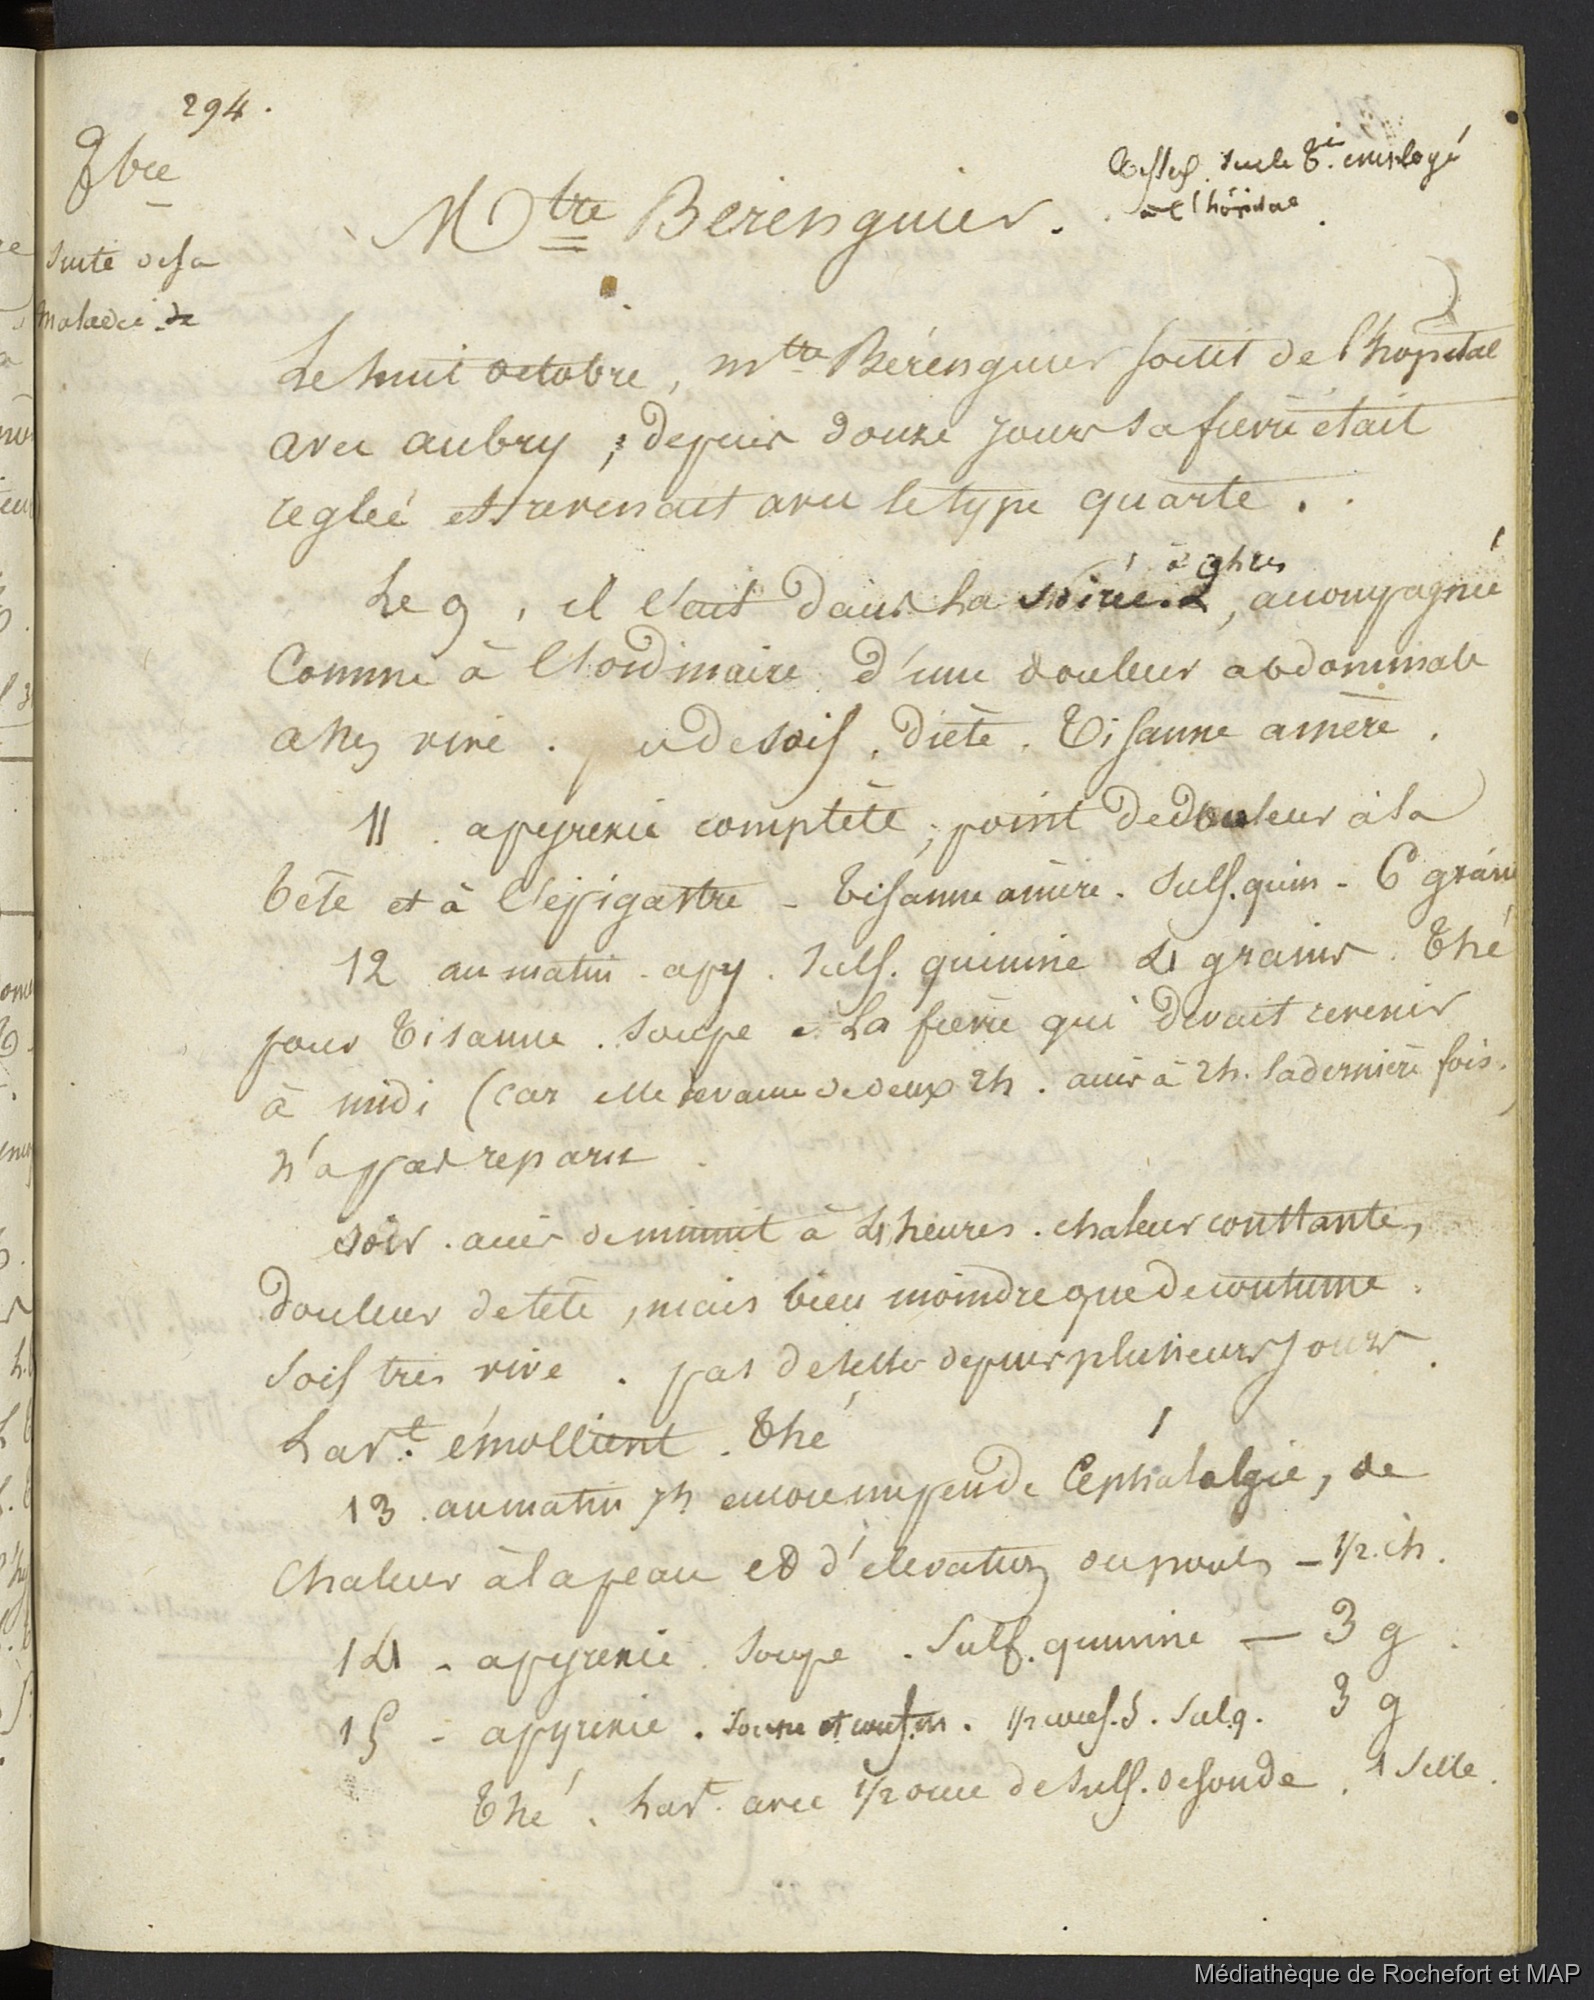 294.
8bre
Suite de sa
maladie de
Mtre Berenguier.
sur le employé
à l'hôpital
Le huit octobre, mtre Bérenguier sortit de l'hopital
avec aubry ; depuis douze jours sa fievre était
reglée et revenait avec le type quarte.
Le 9, il l'eut dans la soirée à 9 hres, accompagnée
Comme à l'ordinaire d'une douleur abdominale
assez vive. peu de soif. diète. Tisanne amère.
11. apyrexie complète ; point de douleur à la
tête et à l'épigastre - tisanne amère. Sulf. quin - 6 grains
12 au matin - apy. Sulf. quinine 4 grains. Thé
pour Tisanne. Soupe. La fievre qui devait revenir
à midi (car elle avance de deux 2h. accès à 2h. la dernière fois)
n'a pas reparu
soir. accès de minuit à 4 heures. chaleur constante,
douleur de tête, mais bien moindre que de coutume.
Soif très vive. pas de selles depuis plusieurs jours.
Lavt. émollient. Thé
13. au matin 7h encore un peu de Céphalalgie, de
Chaleur à la peau et d'élevation du pouls - 1/2. ch.
14 - apyrexie. Soupe. Sulf. quinine - 3 g.
15 - apyrexie. Soupe et 1/2 S. Sul. q. 3 g
Thé. Lavt. avec 1/2 once de Sulf. de soude. 1 Selle.
Médiathèque de Rochefort et MAP